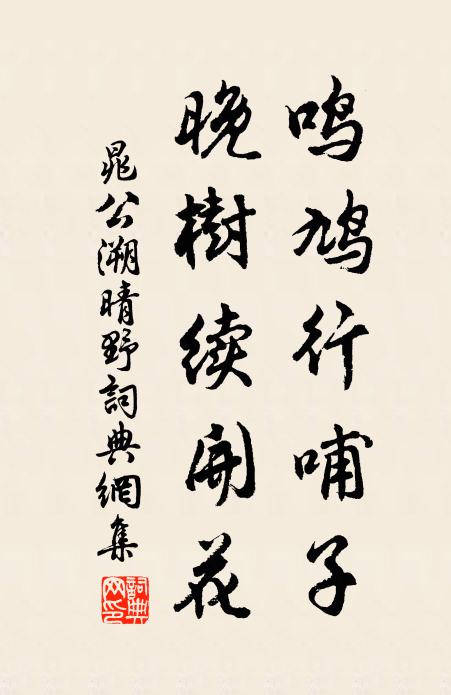 鸣鸠行哺子
晚樹續開花
晁公溯晴野詞典網集
詞典网印